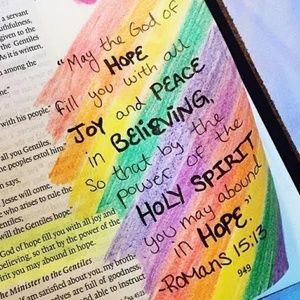 a servant
uthfulness,
given to the
the Gentiles
As it is written,
among the
with his people."
all you Gentiles,
the peoples extol him."
n says,
f Jesse will come,
ho arises to rule the
will the Gentiles hope."
God of hope fill you with all joy and
believing, so that by the power of the
irit you may abound in hope.
The Minister to the Gentiles
f am satisfied about you, my brothers,
elves are full of goodness,
and able to instruct
"May the God of
HOPE
fill you with all
JOY and PEACE
in BELiEViNG,
so that by the
power of the
HOLY SPIRIT
you may abound
in HOPE."
-ROMANS 15:13
949